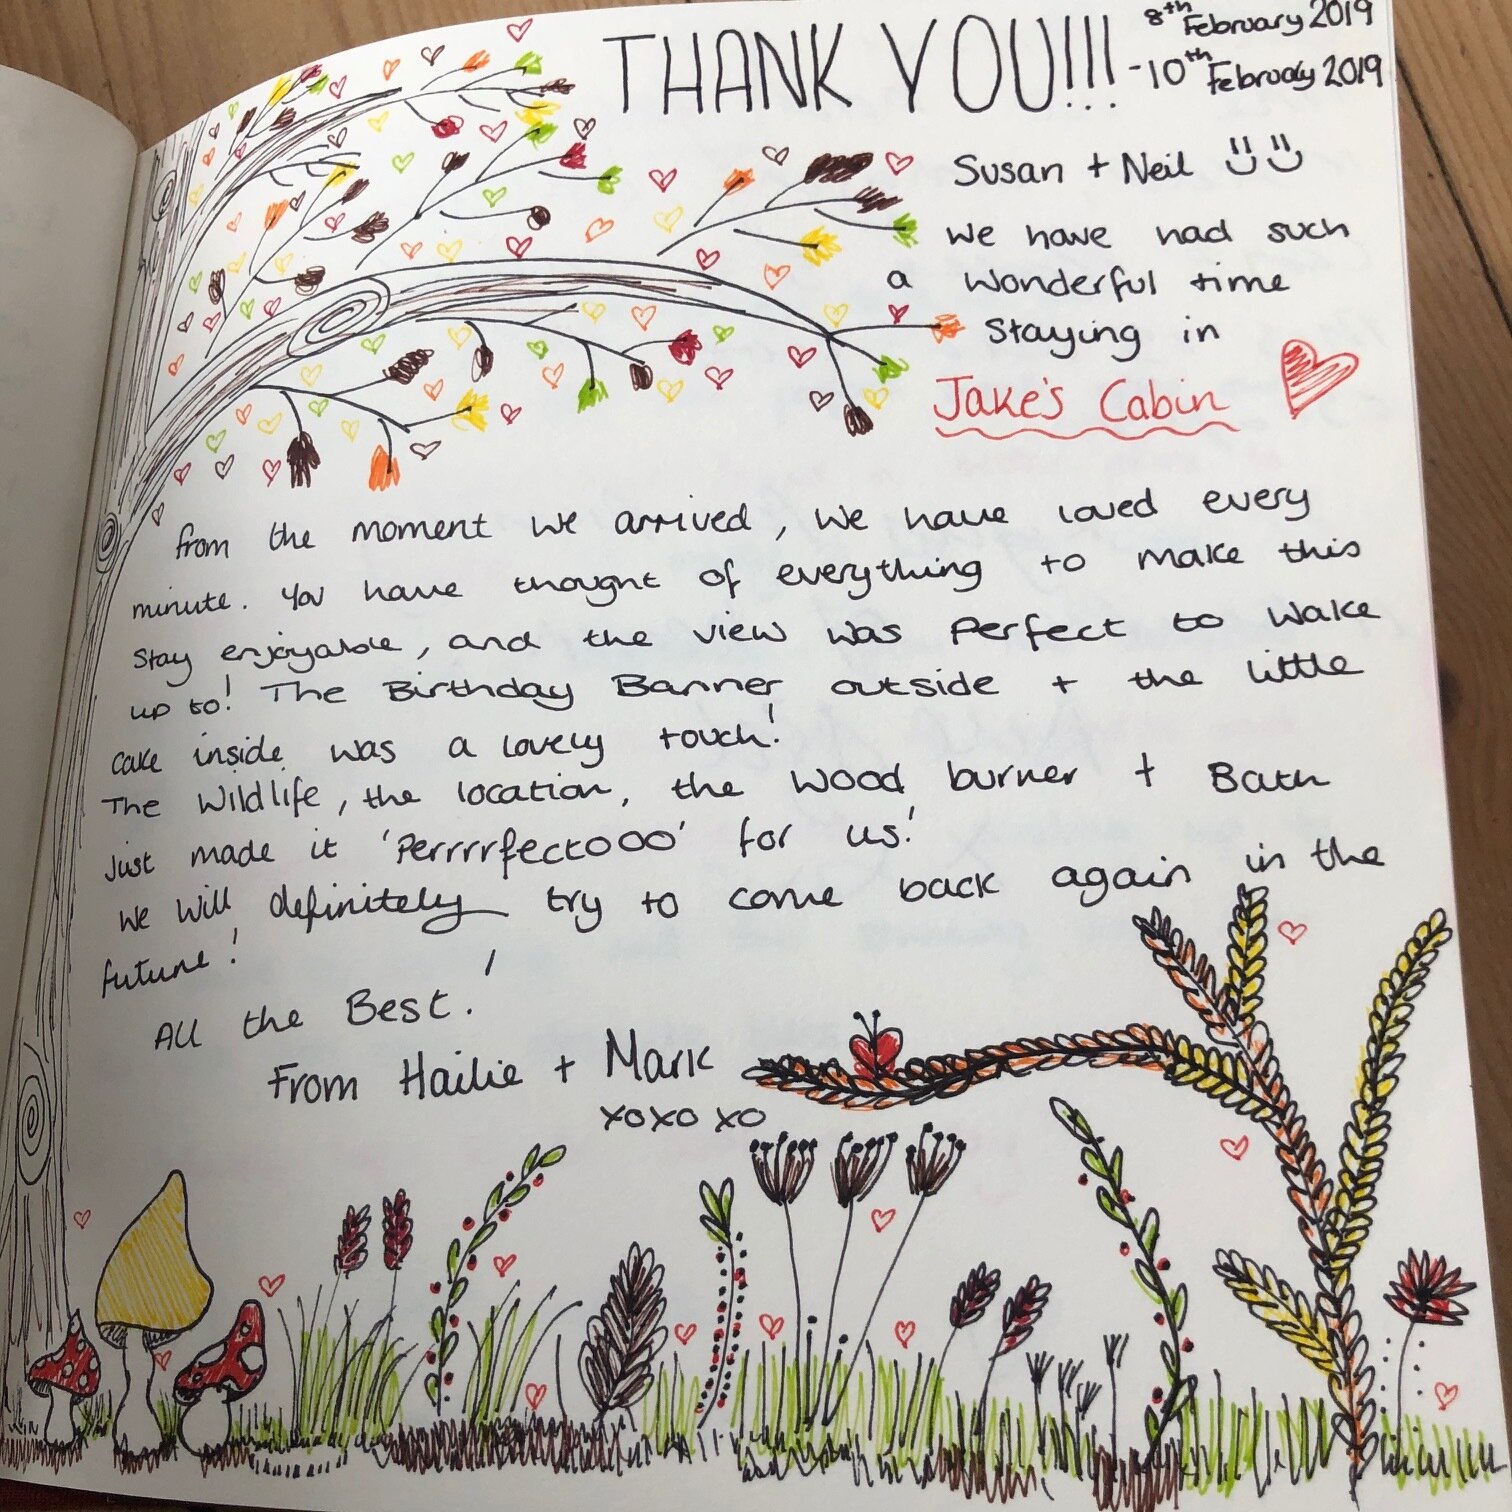 THANK YOU!!! 8th February 2019
-10th February 2019
Susan + Neil
We have had such
a wonderful time
Staying in
Jake's Cabin
from the moment we arrived, we have loved every
minute. You have thought of everything to make this
Stay enjoyable, and the view was Perfect to wake
up to! The Birthday Banner outside + the little
cake inside was a lovely touch!
The Wildlife, the location, the wood burner + Bath
Just made it 'Perrrrfectooo' for us!
We Will definitely try to come back again in the
future!
All the Best!
From Hailie + Mark
xoxoxo